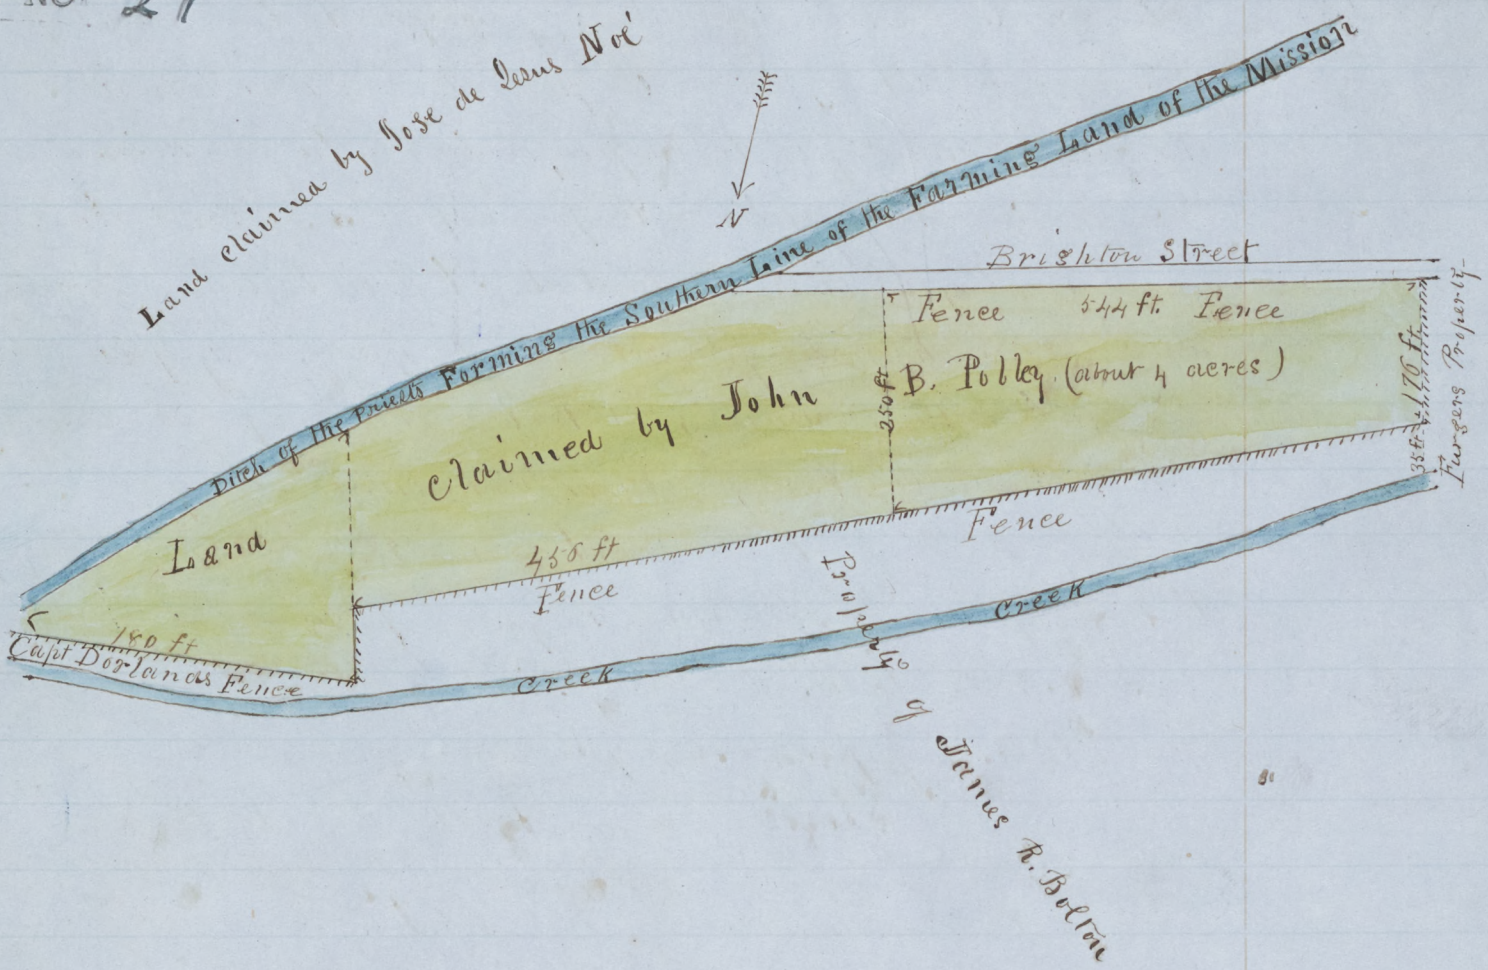 No. 27
Land claimed by Jose de Jesus Noé
N
Ditch of the Priests Forming the Southern Line of the Farming Land of the Mission
Brighton Street
Fence 544 ft. Fence
Land claimed by John B. Polley (about 4 acres)
250 ft
176 ft
35 ft
Furgers Property
456 ft
Fence
Fence
180 ft
Capt Dorlands Fence
Creek
Creek
Property of James R. Bolton